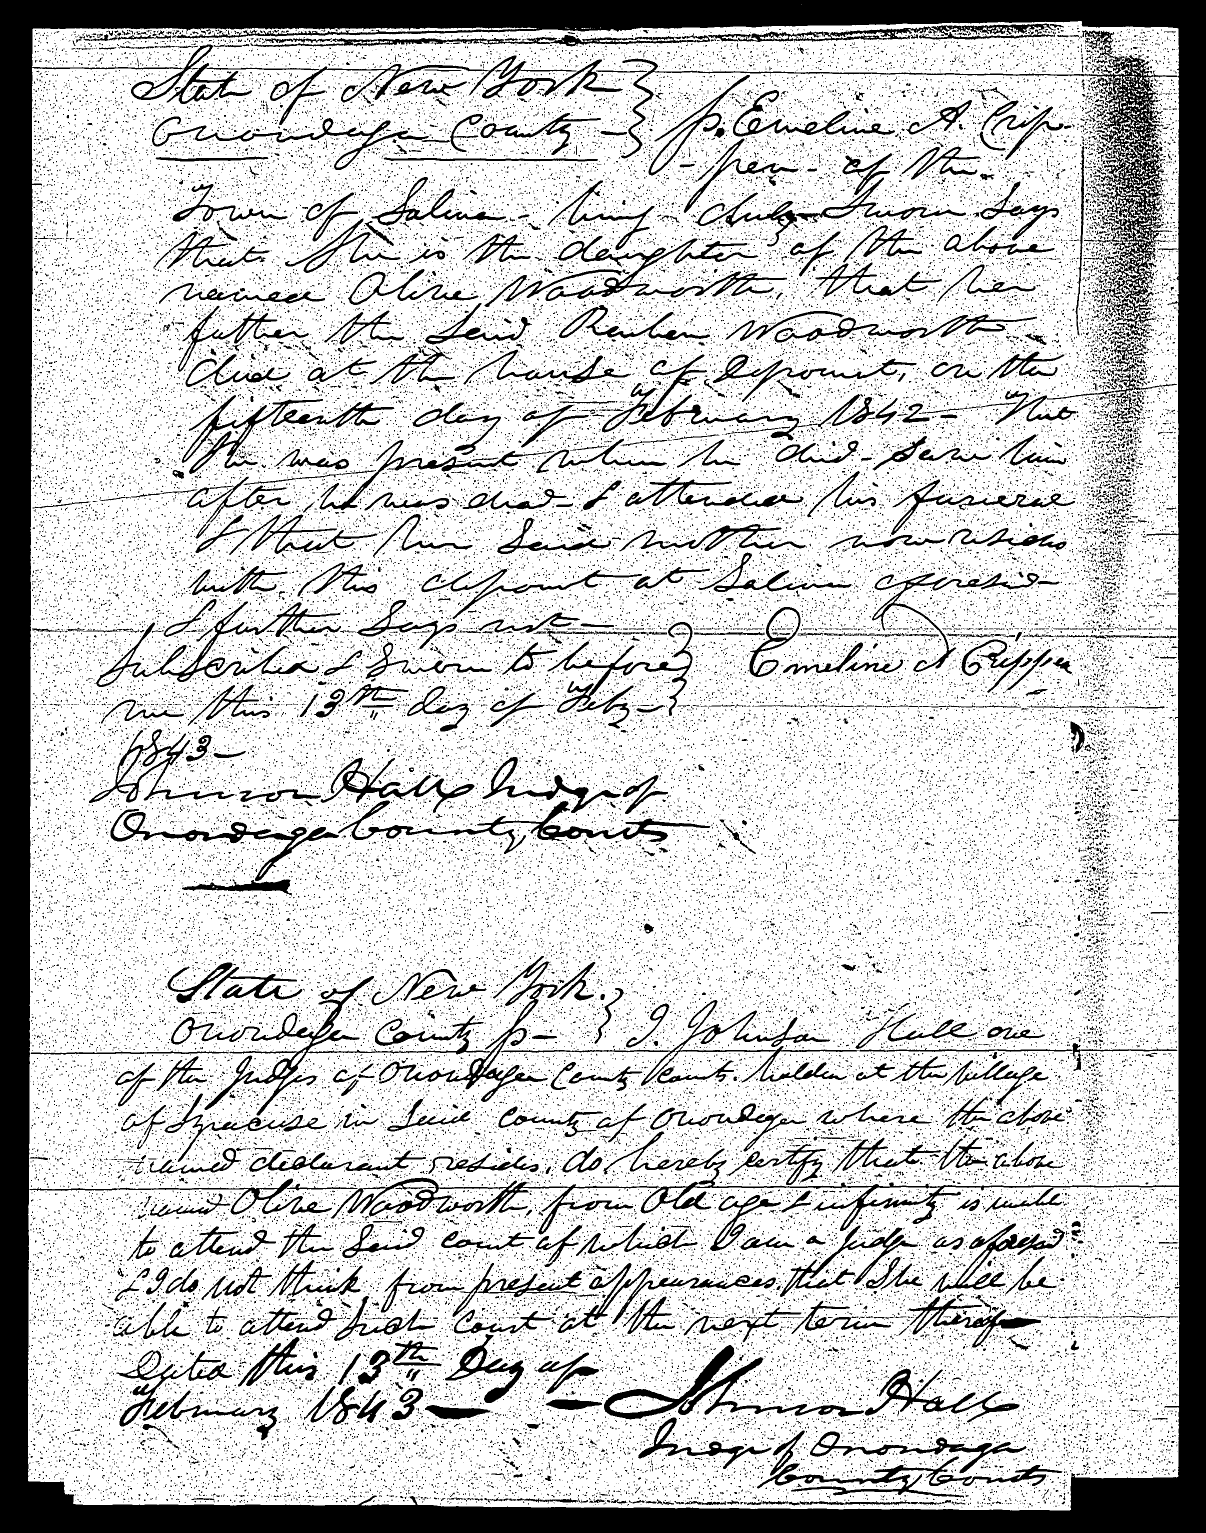 State of New York }
Onondaga County - } ss. Emeline A. Crip-
- pen - of the
Town of Salina - being duly Sworn Says
that She is the daughter of the above
named Olive Woodworth, that her
father the Said Reuben Woodworth
died at the house of deponent, on the
fifteenth day of February 1842 - that
She was present when he died - Saw him
after he was dead - & attended his funeral
& that her Said mother now resides
with this deponent at Salina aforesaid -
& further Says not -
Subscribed & Sworn to before } Emeline A Crippen
me this 13th day of Feby - }
1843 -
Johnson Hall Judge of
Onondaga County Courts
State of New York. }
Onondaga County ss - } I. Johnson Hall one
of the Judges of Onondaga County Courts. holden at the Village
of Syracuse in Said County of Onondaga where the above
named declarant resides, do hereby certify that the above
named Olive Woodworth, from Old age & infirmity is unable
to attend the Said court of which I am a Judge as aforesaid
& I do not think from present appearances that She will be
able to attend Such Court at the next term thereof
Dated this 13th Day of
February 1843 - - Johnson Hall
Judge of Onondaga
County Courts